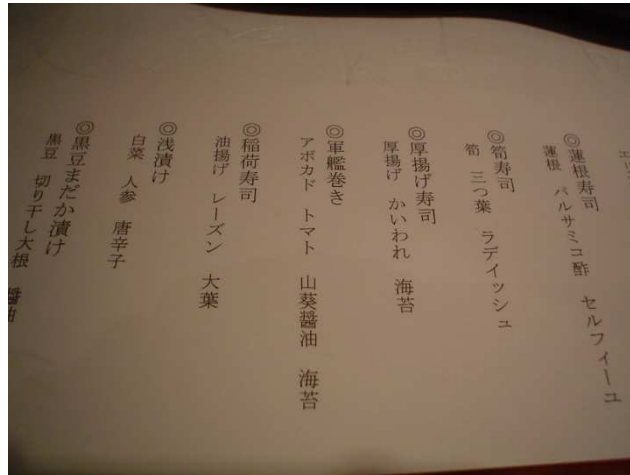 ◎蓮根寿司
蓮根　バルサミコ酢　セルフィーユ
◎筍寿司
筍　三つ葉　ラデイッシュ
◎厚揚げ寿司
厚揚げ　かいわれ　海苔
◎軍艦巻き
アボカド　トマト　山葵醤油　海苔
◎稲荷寿司
油揚げ　レーズン　大葉
◎浅漬け
白菜　人参　唐辛子
◎黒豆まだか漬け
黒豆　切り干し大根　醤油